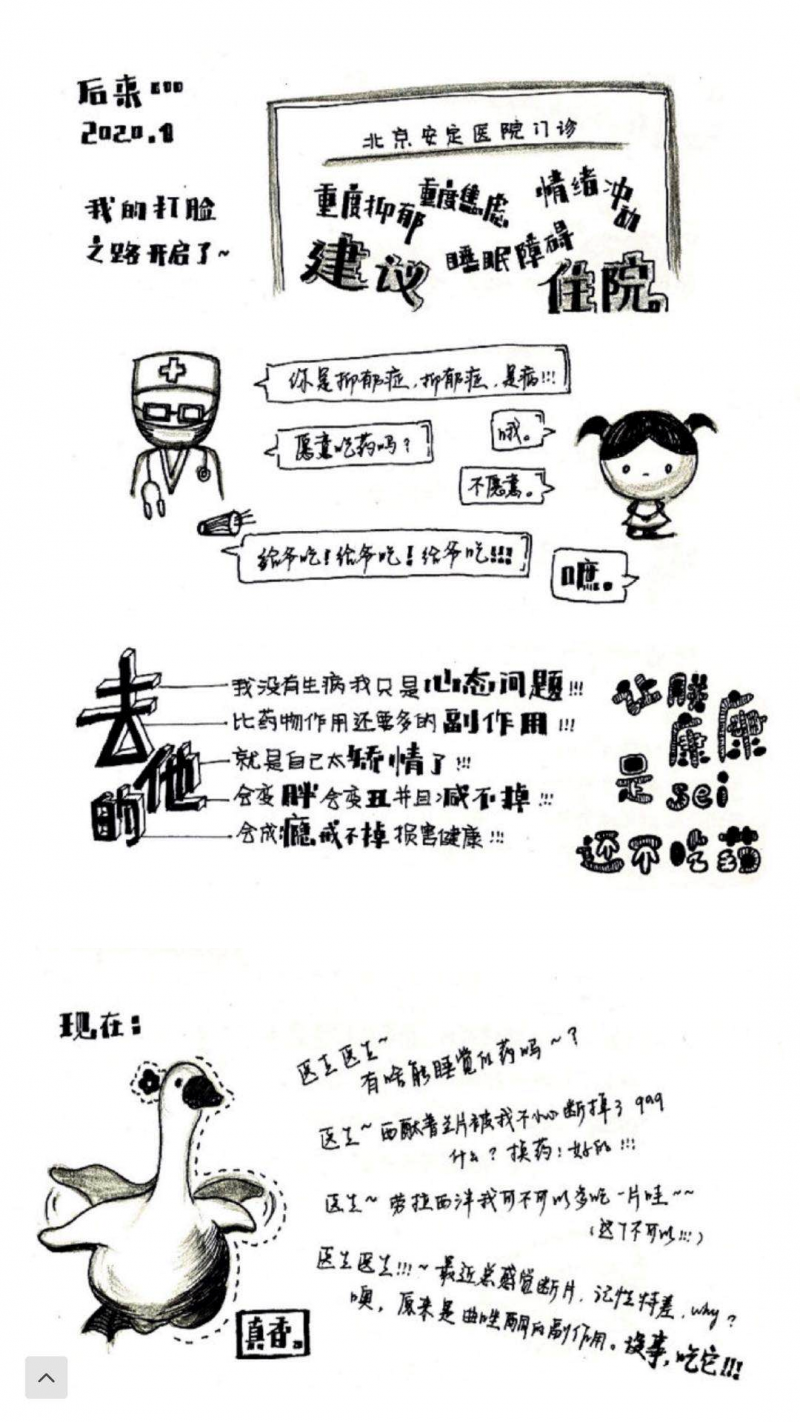 后来……
2020.1
我的打脸
之路开启了~
北京安定医院门诊
重度抑郁 重度焦虑 情绪冲动
睡眠障碍
建议 住院。
你是抑郁症,抑郁症,是病!!!
哦。
愿意吃药吗?
不愿意。
给爷吃!给爷吃!给爷吃!!!
嗻。
去他的
我没有生病我只是心态问题!!!
比药物作用还要多的副作用!!!
就是自己太矫情了!!!
会变胖会变丑并且减不掉!!!
会成瘾戒不掉损害健康!!!
让朕
康康
是sei
还不吃药
现在:
医生医生~
有啥能睡觉的药吗~?
医生~西酞普兰片被我不小心断掉了999
什么?换药!好的!!!
医生~劳拉西泮我可不可以多吃一片哇~~
(这个不可以!!!)
医生医生!!!~最近总感觉断片,记性特差,why?
噢,原来是曲唑酮的副作用。没事,吃它!!!
真香。